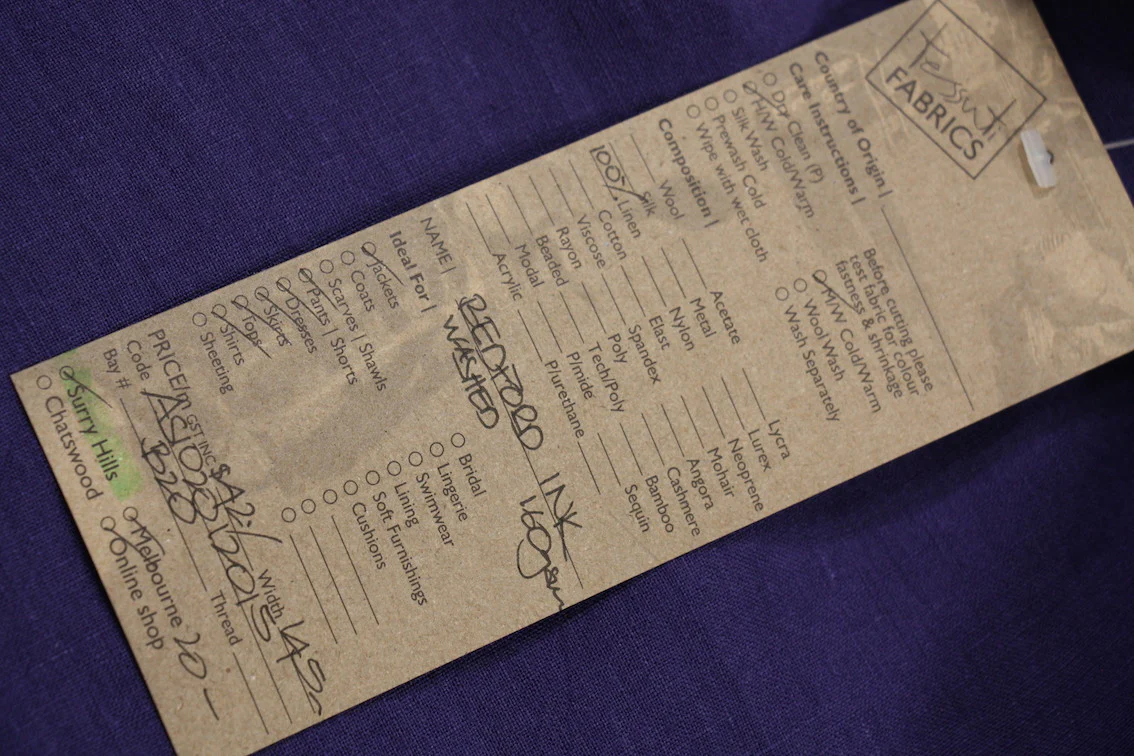 tessuti
FABRICS
Country of Origin |
Care Instructions |
Dry Clean (P)
H/W Cold/Warm
Silk Wash
Prewash Cold
Wipe with wet cloth
Before cutting please
test fabric for colour
fastness & shrinkage
M/W Cold/Warm
Wool Wash
Wash Separately
Composition |
Wool
Silk
100% Linen
Cotton
Viscose
Rayon
Beaded
Modal
Acrylic
Acetate
Metal
Nylon
Elast
Spandex
Poly
Tech/Poly
P/mide
P/urethane
Lycra
Lurex
Neoprene
Mohair
Angora
Cashmere
Bamboo
Sequin
NAME | REDFORD INK
WASHED 160gsm
Ideal For |
Jackets
Coats
Scarves | Shawls
Pants | Shorts
Dresses
Skirts
Tops
Shirts
Sheeting
Bridal
Lingerie
Swimwear
Lining
Soft Furnishings
Cushions
PRICE/m GST INC $ Width
Code
Bay # B28 Thread
Surry Hills
Melbourne 20 -
Chatswood
Online shop